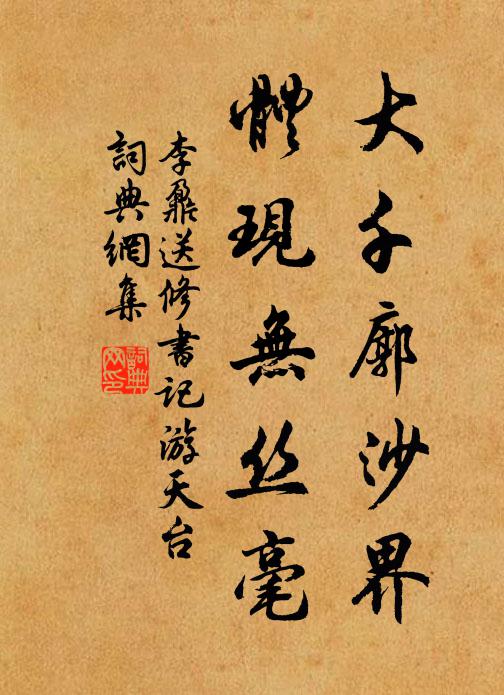 大千廓沙界
體現無丝毫
李鼐送修書記游天台
詞典網集
詞典网印